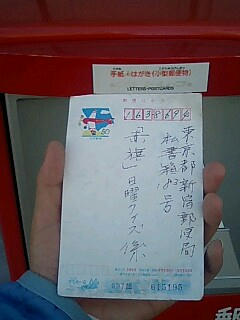 手紙・はがき(小型郵便物)
LETTERS・POSTCARDS
郵便はがき
50
1638696
東京都新宿郵便局
私書箱93号
「赤旗」日曜クイズ係
615195